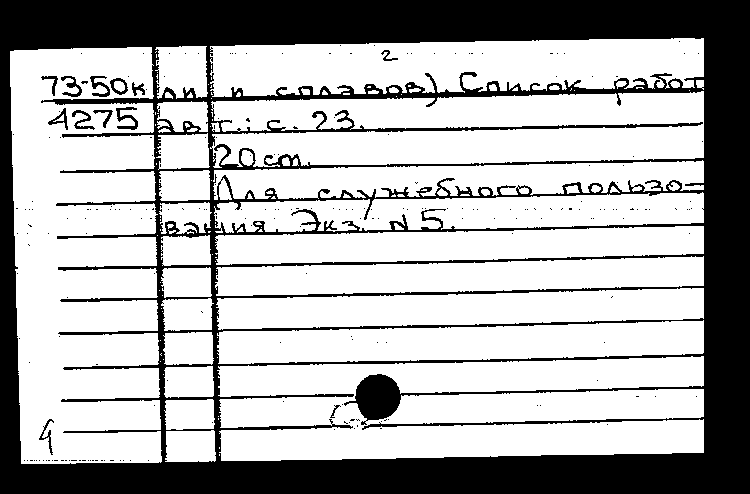 2
73-50к ли и сплавов). Список работ
4275 авт.: с. 23.
20 cm.
Для служебного пользо-
вания. Экз. N 5.